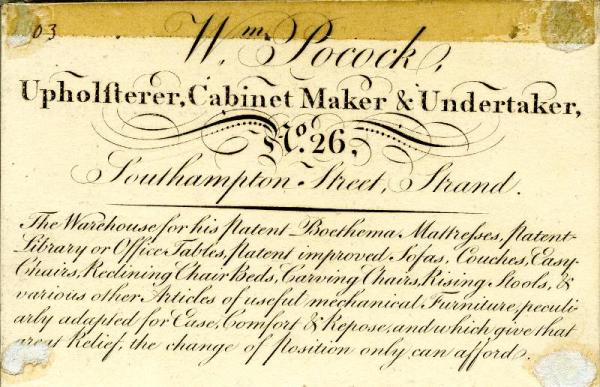 03
Wm. Pocock,
Upholſterer, Cabinet Maker & Undertaker,
No. 26,
Southampton Street, Strand.
The Warehouse for his Patent Boethema Mattresses, Patent
Library or Office Tables, Patent improved Sofas, Couches, Easy
Chairs, Reclining Chair Beds, Carving Chairs, Rising Stools, &
various other Articles of useful mechanical Furniture, peculi-
arly adapted for Ease, Comfort & Repose, and which give that
great Relief, the change of Position only can afford.